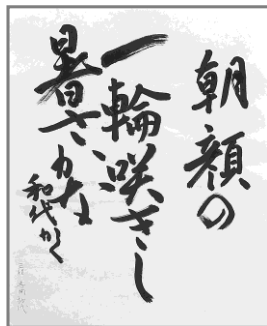 朝顔の
一輪咲きし
暑さかな
和代かく